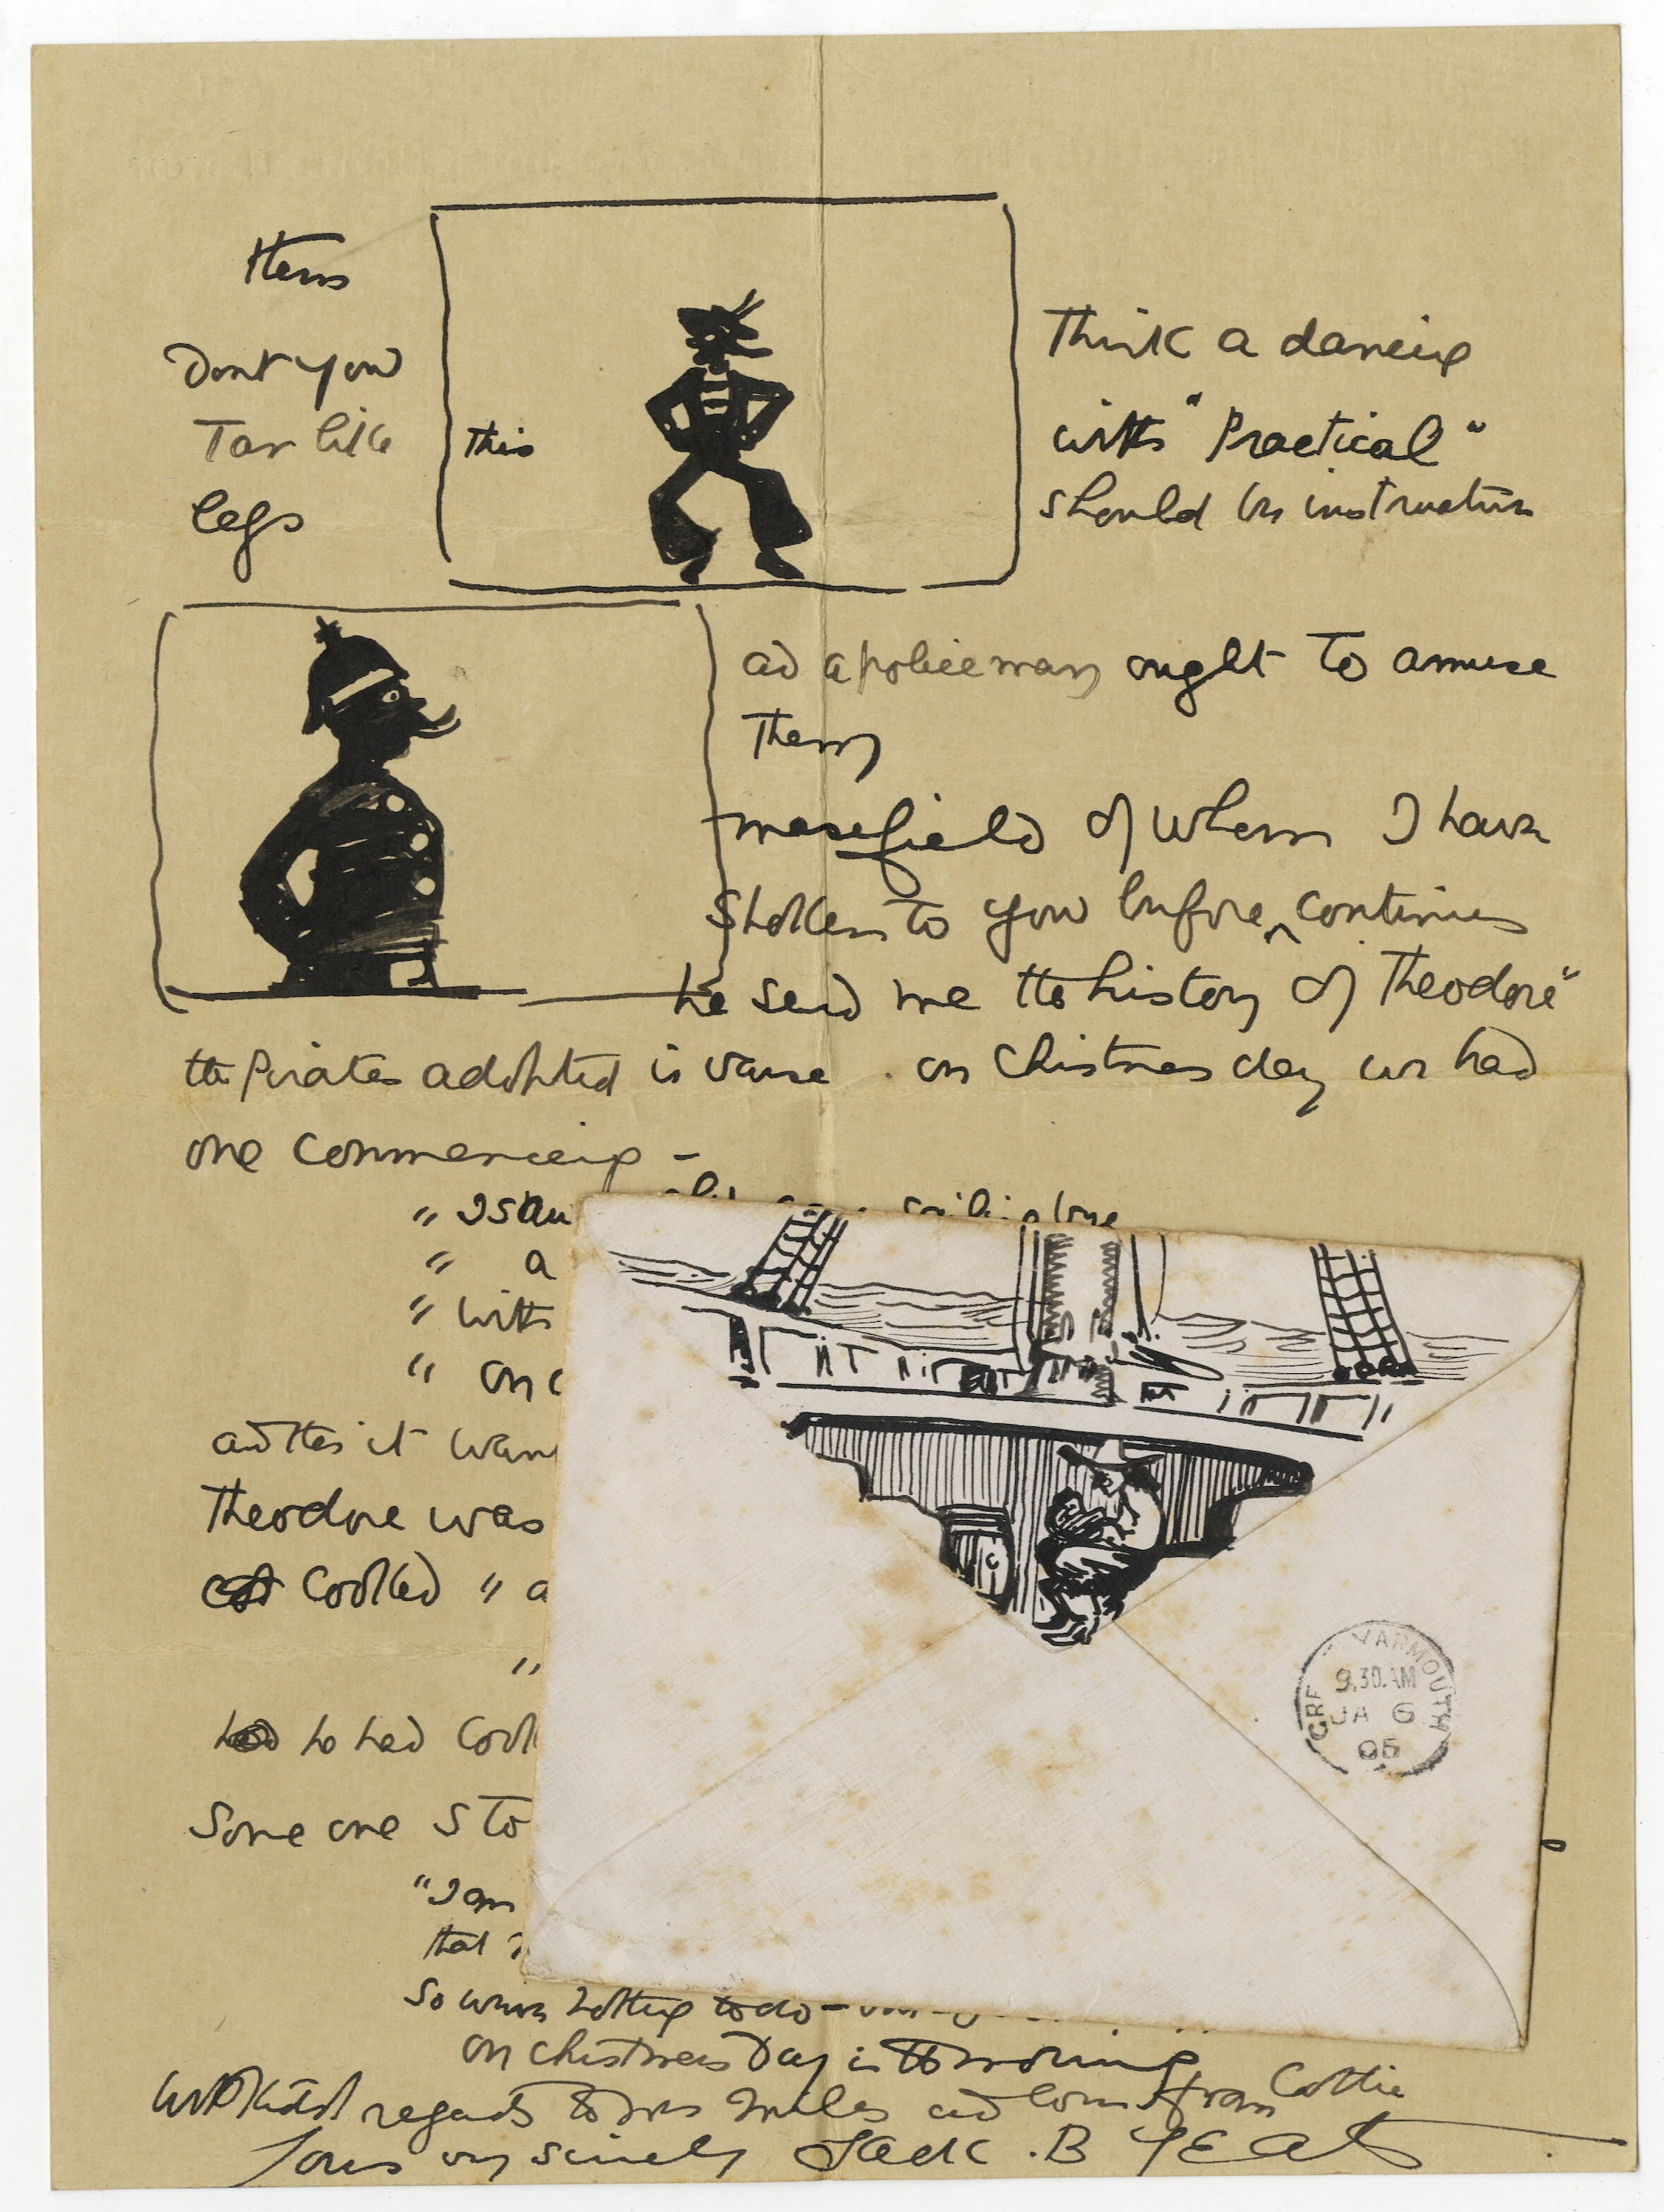 Items
Dont you think a dancing
Tar like this with "Practical"
legs should be instructive
ad a policeman ought to amuse
them
masefield of whom I have
spoken to you before, continues
he send me the history of Theodore"
the Pirates adopted in verse. on Christmas day we had
one commencing -
" I saw sailing
" a
" with
" on
and then it
Theodore was
cooked " a
"
he had
Some one
"I am
that
So when nothing to do -
on Christmas Day in the morning
With kind regards to mrs Miles ad love from Cottie
Yours very sincerely Jack . B YEATS
GRE YARMOUTH
9.30.AM
JA 6
05